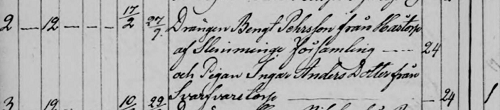 2 - 12 - - 17/2 27/7 Drängen Bengt Pehrsson från Hastorp
af Slimminge Församling - - - 24
och Pigan Ingar Anders Dotter från
Svarfvarstorp - - - 24
3 12 10 29